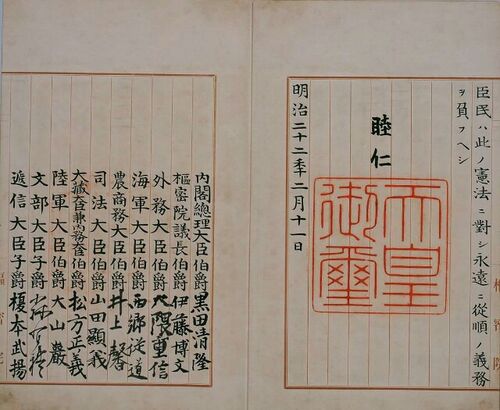 臣民ハ此ノ憲法ニ對シ永遠ニ從順ノ義務
ヲ負フヘシ
睦仁
天皇
御璽
明治二十二年二月十一日
内閣總理大臣伯爵黒田清隆
樞密院議長伯爵伊藤博文
外務大臣伯爵大隈重信
海軍大臣伯爵西鄕從道
農商務大臣伯爵井上馨
司法大臣伯爵山田顯義
大藏大臣兼内務大臣伯爵松方正義
陸軍大臣伯爵大山巖
文部大臣子爵森有禮
遞信大臣子爵榎本武揚